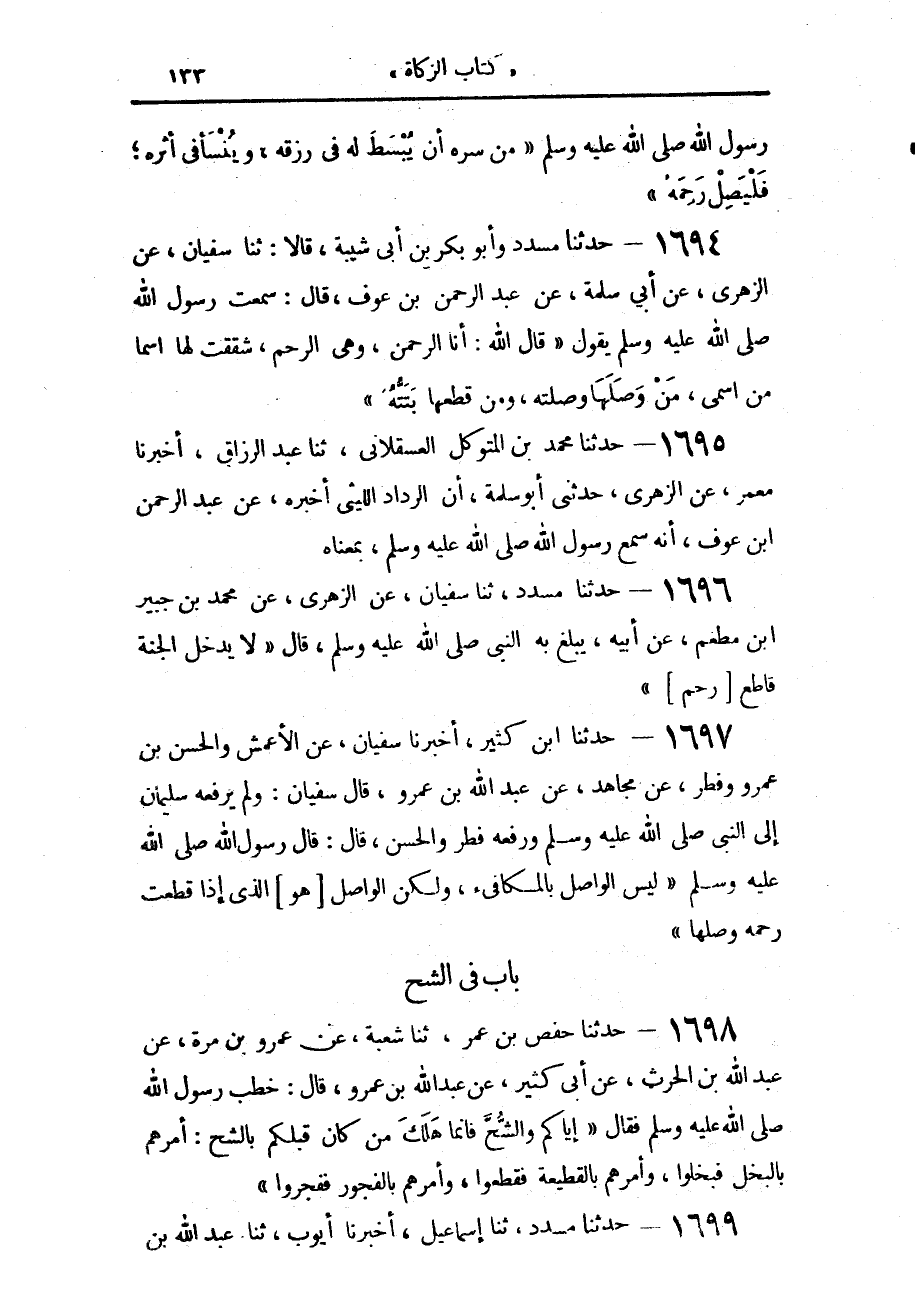 « كتاب الزكاة » ١٣٣
رسول الله صلى الله عليه وسلم « من سره أن يُبْسَطَ له فى رزقه ، وينْسَأ فى أثره ؛
فَلْيَصِلْ رَحِمَهُ »
١٦٩٤ — حدثنا مسدد وأبو بكر بن أبى شيبة ، قالا : ثنا سفيان ، عن
الزهرى ، عن أبي سلمة ، عن عبد الرحمن بن عوف ، قال : سمعت رسول الله
صلى الله عليه وسلم يقول « قال الله : أنا الرحمن ، وهى الرحم ، شققت لها اسما
من اسمى ، مَنْ وَصَلَهَا وصلته ، ومن قطعها بَتَتُّهُ »
١٦٩٥ — حدثنا محمد بن المتوكل العسقلانى ، ثنا عبد الرزاق ، أخبرنا
معمر ، عن الزهرى ، حدثنى أبو سلمة ، أن الرداد الليثى أخبره ، عن عبد الرحمن
ابن عوف ، أنه سمع رسول الله صلى الله عليه وسلم ، بمعناه
١٦٩٦ — حدثنا مسدد ، ثنا سفيان ، عن الزهرى ، عن محمد بن جبير
ابن مطعم ، عن أبيه ، يبلغ به النبي صلى الله عليه وسلم ، قال « لا يدخل الجنة
قاطع [ رحم ] »
١٦٩٧ — حدثنا ابن كثير ، أخبرنا سفيان ، عن الأعمش والحسن بن
عمرو وفطر ، عن مجاهد ، عن عبد الله بن عمرو ، قال سفيان : ولم يرفعه سليمان
إلى النبي صلى الله عليه وسلم ورفعه فطر والحسن ، قال : قال رسول الله صلى الله
عليه وسلم « ليس الواصل بالمكافىء ، ولكن الواصل [ هو ] الذى إذا قطعت
رحمه وصلها »
باب فى الشح
١٦٩٨ — حدثنا حفص بن عمر ، ثنا شعبة ، عن عمرو بن مرة ، عن
عبد الله بن الحرث ، عن أبى كثير ، عن عبد الله بن عمرو ، قال : خطب رسول الله
صلى الله عليه وسلم فقال « إياكم والشُّحَّ فانما هَلَكَ من كان قبلكم بالشح : أمرهم
بالبخل فبخلوا ، وأمرهم بالقطيعة فقطعوا ، وأمرهم بالفجور ففجروا »
١٦٩٩ — حدثنا مسدد ، ثنا إسماعيل ، أخبرنا أيوب ، ثنا عبد الله بن